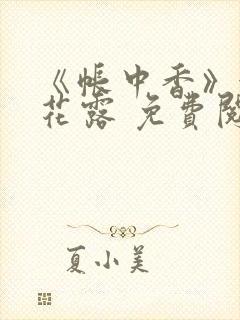 《帐中香》
花露 免費閱
夏小美